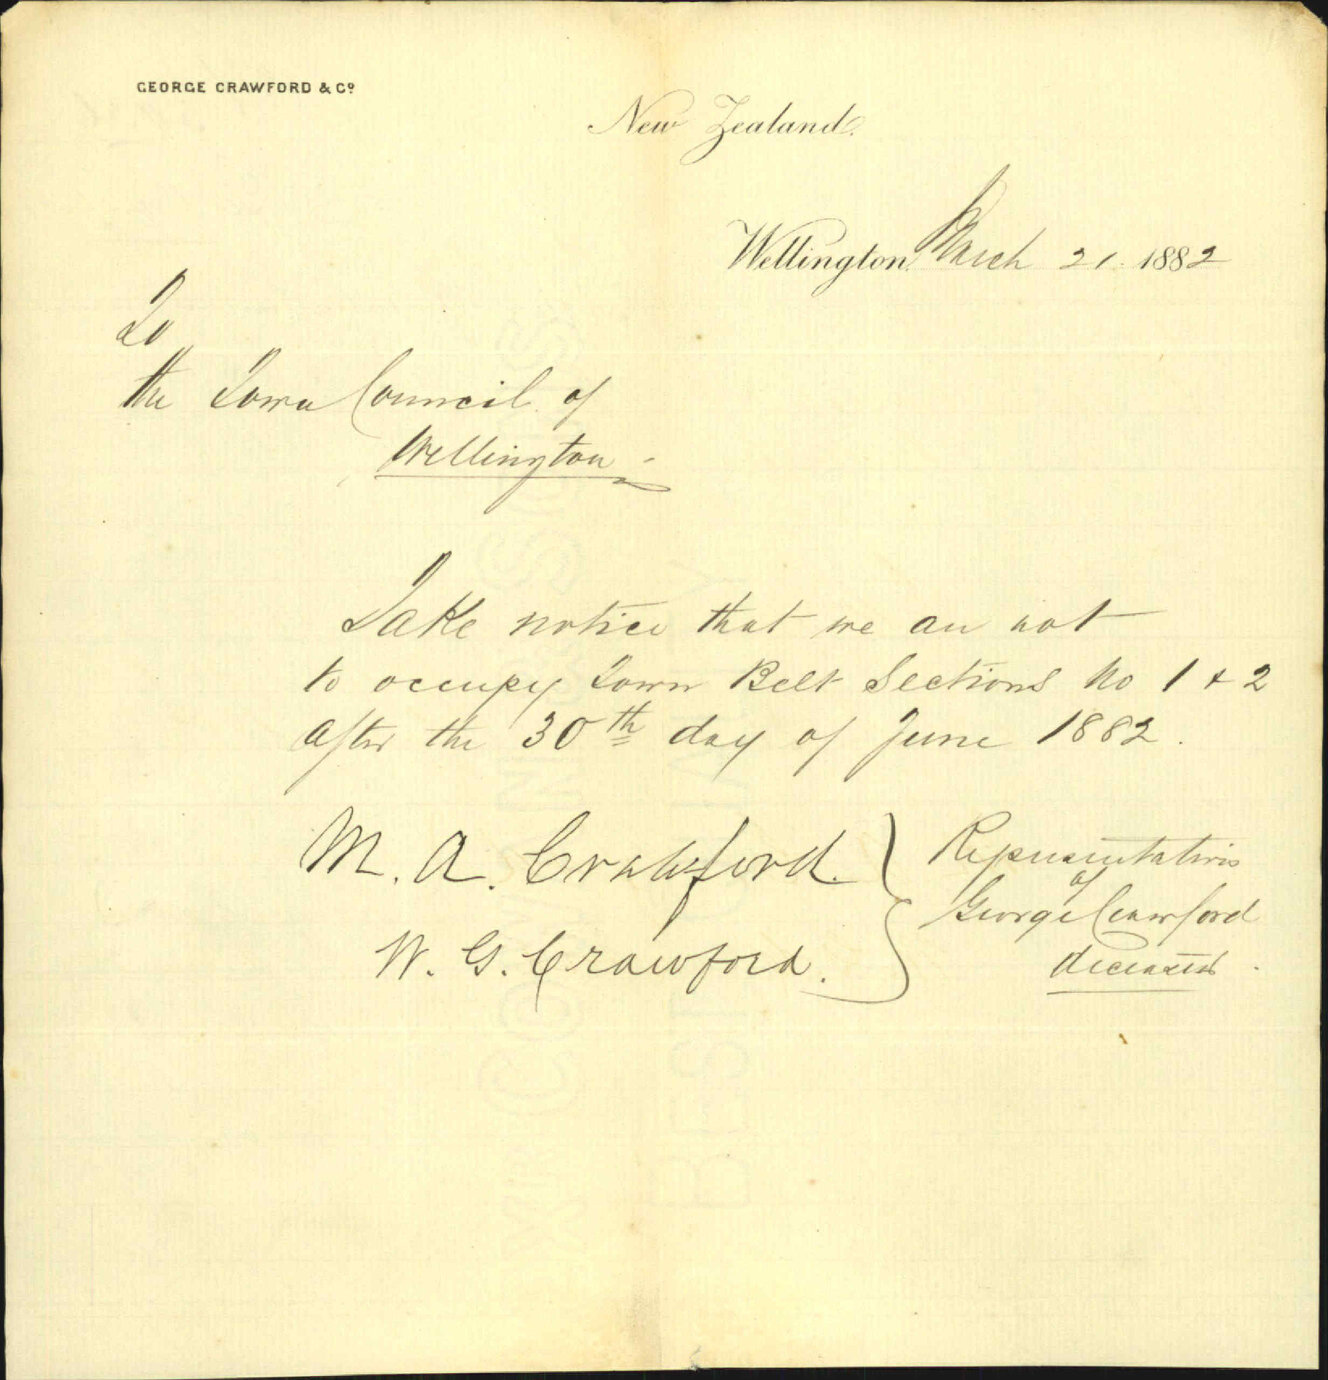 GEORGE CRAWFORD & Co
New Zealand.
Wellington, March 21. 1882
To
the Town Council of
Wellington
Take notice that we are not
to occupy Town Belt Sections No 1 & 2
after the 30th day of June 1882.
M. A. Crawford.
W. G. Crawford.
Representatives
of
George Crawford
deceased.